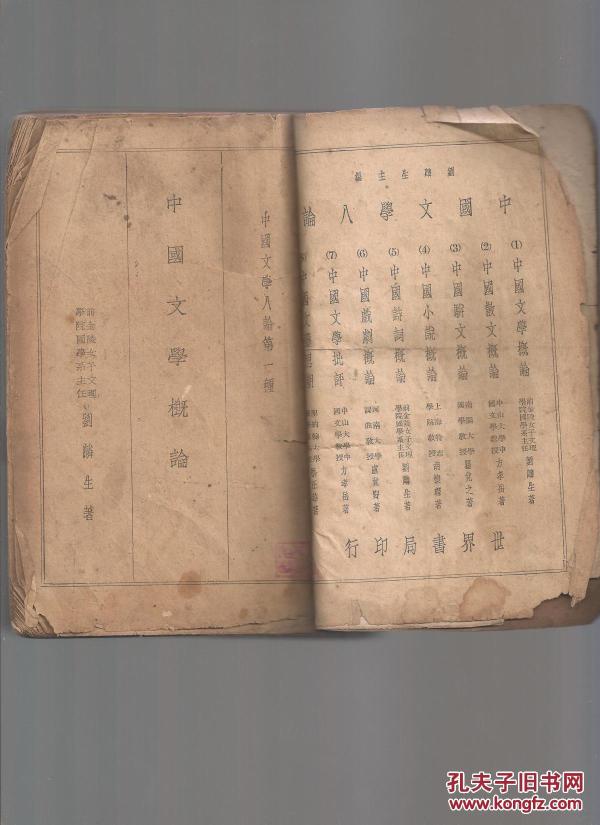 劉麟生主編
中國文學八論
(1)中國文學概論
前金陵女子文理
學院國學系主任
劉麟生著
(2)中國散文概論
中山大學中
國文學教授
方孝岳著
(3)中國駢文概論
(4)中國小說概論
(5)中國詩詞概論
前金陵女子文理
學院國學系主任
劉麟生著
(6)中國戲劇概論
(7)中國文學批評
中山大學中
國文學教授
方孝岳著
世界書局印行
中國文學八論第一種
中國文學概論
前金陵女子文理
學院國學系主任
劉麟生著
孔夫子旧书网
www.kongfz.com